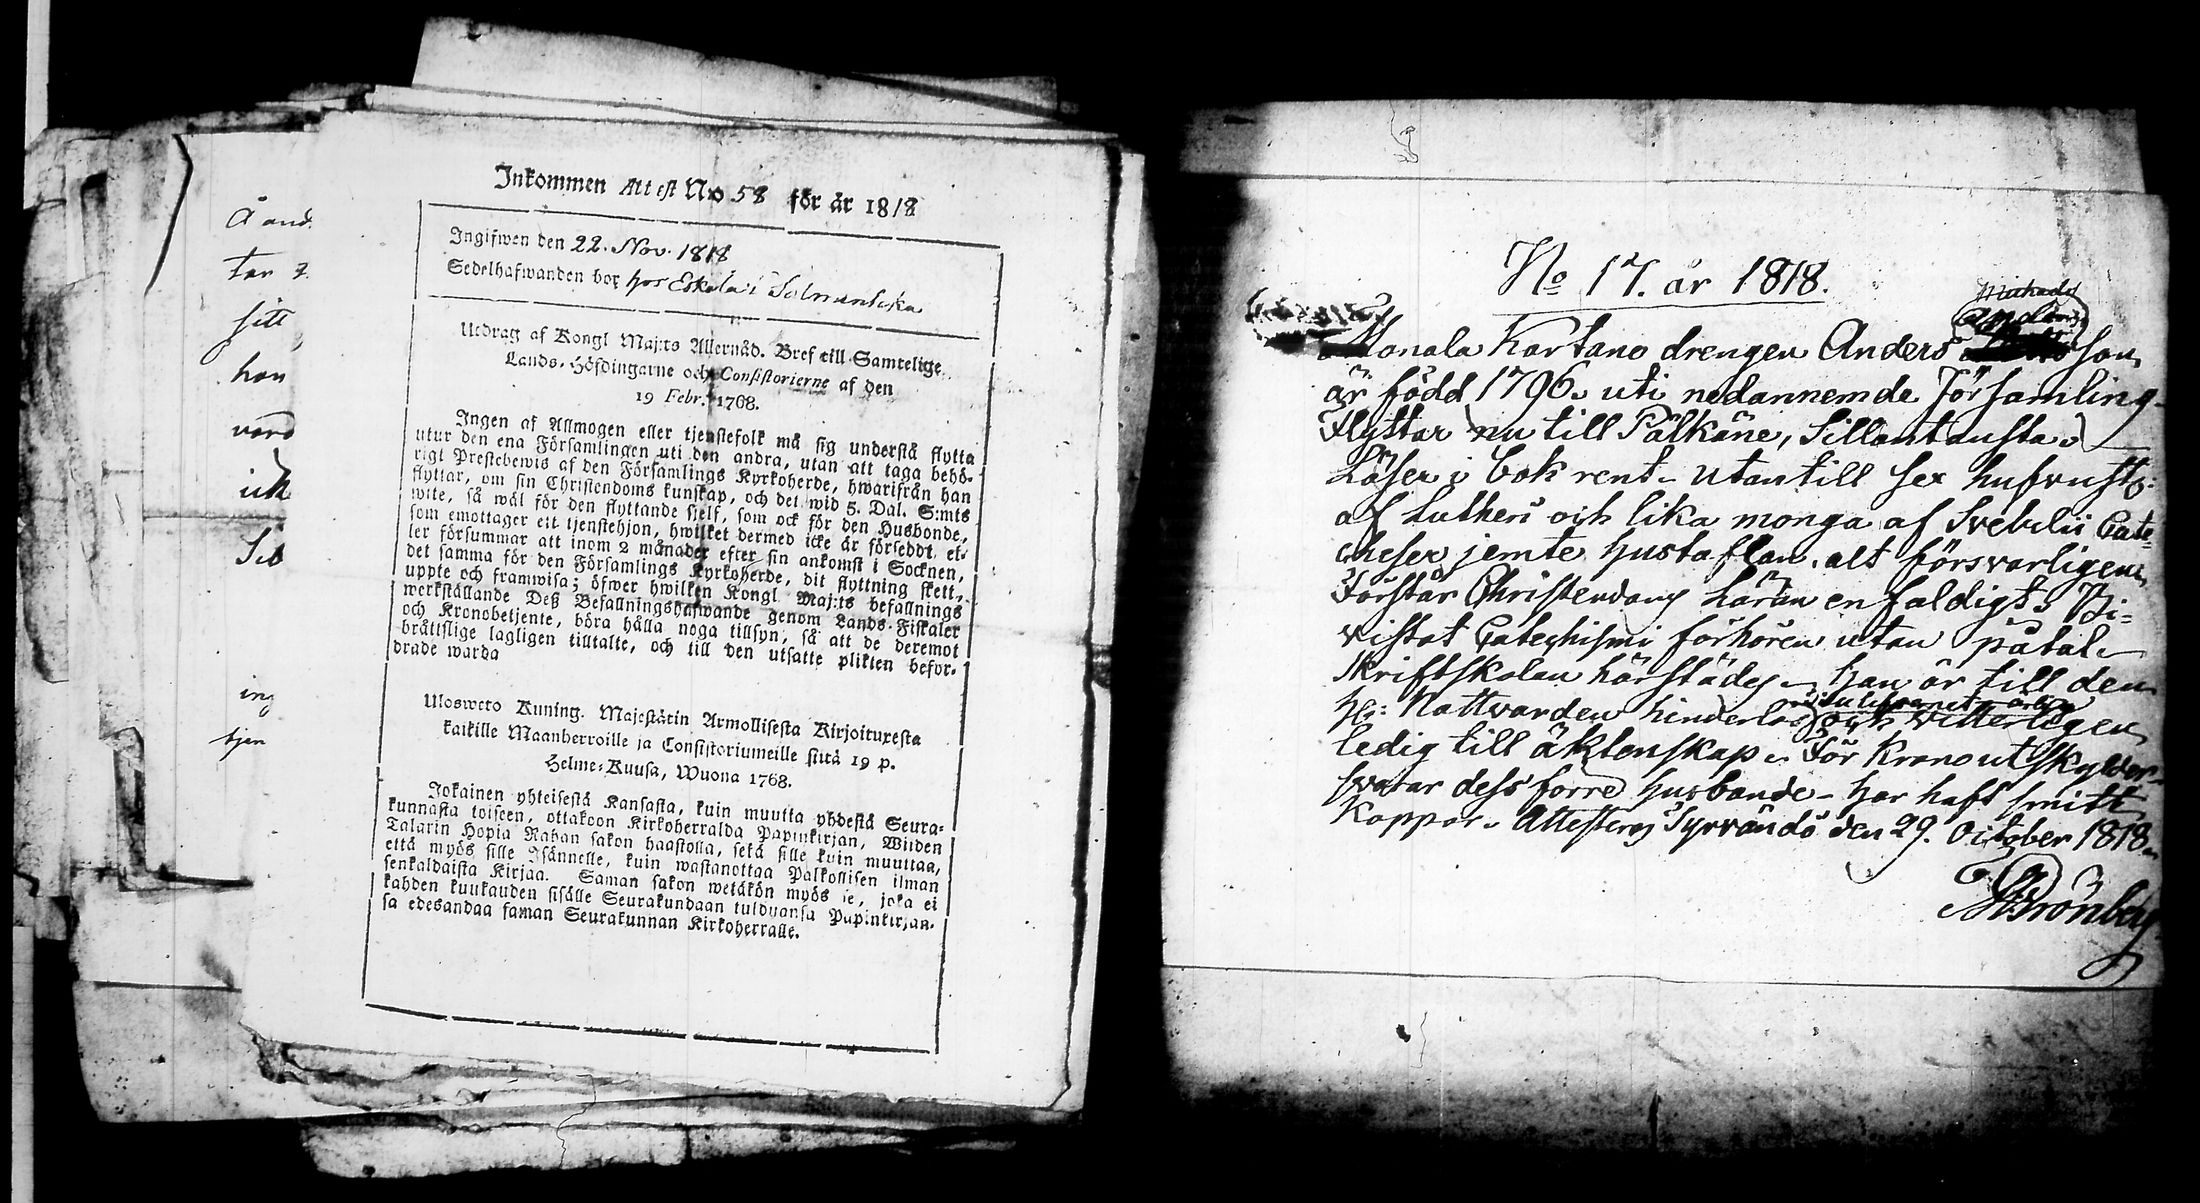 Å and.
tar
sitt
han
vard
ick
Sed
ing
tjen
Inkommen Attest No 58 för år 1818
Ingifwen den 22. Nov. 1818
Sedelhafwanden bor hos Eskola i
Utdrag af Kongl Maj:ts Allernåd. Bref till Samtelige
Lands-Höfdingarne och Consistorierne af den
19 Febr. 1768.
Ingen af Allmogen eller tjenstefolk må sig understå flytta
utur den ena Församlingen uti den andra, utan att taga behö-
rigt Prestebewis af den Församlings Kyrkoherde, hwarifrån han
flyttar, om sin Christendoms kunskap, och det wid 5. Dal. S:mts
wite, så wäl för den flyttande sjelf, som ock för den Husbonde,
som emottager eit tjenstehjon, hwilket dermed icke är försedd, el-
ler försummar att inom 2 månader efter sin ankomst i Socknen,
det samma för den Församlings Kyrkoherde, dit flyttning skett,
uppte och framwisa; öfwer hwilken Kongl Maj:ts befallnings
werkställande Deß Befallningshafwande genom Lands-Fiskaler
och Kronobetjente, böra hålla noga tillsyn, så att de deremot
bråttslige lagligen tilltalte, och till den utsatte plikten befor-
drade warda
Ulosweto Kuning. Majestätin Armollisesta Kirjoituxesta
kaikille Maanherroille ja Consistoriumeille siitä 19 p.
Helme-Kuusa, Wuona 1768.
Jokainen yhteisestä Kansasta, kuin muutta yhdestä Seura-
kunnasta toiseen, ottakoon Kirkoherralda Papinkirjan, Wiiden
Talarin Hopia Rahan sakon haastolla, sekä sille kuin muuttaa,
että myös sille Isännelle, kuin wastanottaa Palkollisen ilman
senkaldaista Kirjaa. Saman sakon wetäkön myös se, joka ei
kahden kuukauden sisälle Seurakundaan tulduansa Papinkirjan-
sa edesandaa saman Seurakunnan Kirkoherralle.
No 17. år 1818.
Michels
Anders
Kartano drengen Anders son
är född 1796. uti nedannemde Församling
Flyttar nu till Pälkäne, Sillantausta
Läser i bok rent utantill sex hufvustp:
af Lutheri och lika monga af Svebelii Cate=
cheser jemte hustaflan, alt försvarligen
Förstår Christendoms Läran enfaldigt. Bi=
vistat Catechismi förhören utan påtal.
Skriftskolan härstädes. han är till den
H: Nattvarden hinderlös och vitterligen
ledig till äktenskap. För Kronoutskylder
svarar dess förre husbonde - har haft smitt
Koppor. Attesteras Tyrvändö den 29. October 1818.
Grönberg